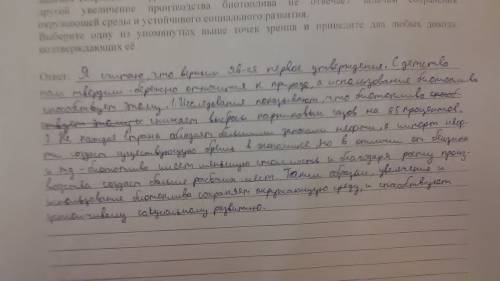 другой увеличение производства биотоплива не отвечает
окружающей среды и устойчивого социального развития.
Выберите одну из упомянутых выше точек зрения и приведите два любых довода,
подтверждающих её.
Ответ: Я считаю, что верным яв-ся первое утверждение. С детства
нам твердили бережно относится к природе, а использование биотоплива
способствует этому. 1. Исследования показывают, что биотопливо
снижает выброс парниковых газов на 65 процентов.
2 Не каждая страна обладает большими запасами нефти и импорт неф-
ти создает существующую бремя в экономике. Но в отличии от бензина
и тд - биотопливо имеет меньшую стоимость и благодаря росту произ-
водства создает больше рабочих мест. Таким образом, увеличение и
использование биотоплива сохраняет окружающую среду, и способствуют
социальному развитию.